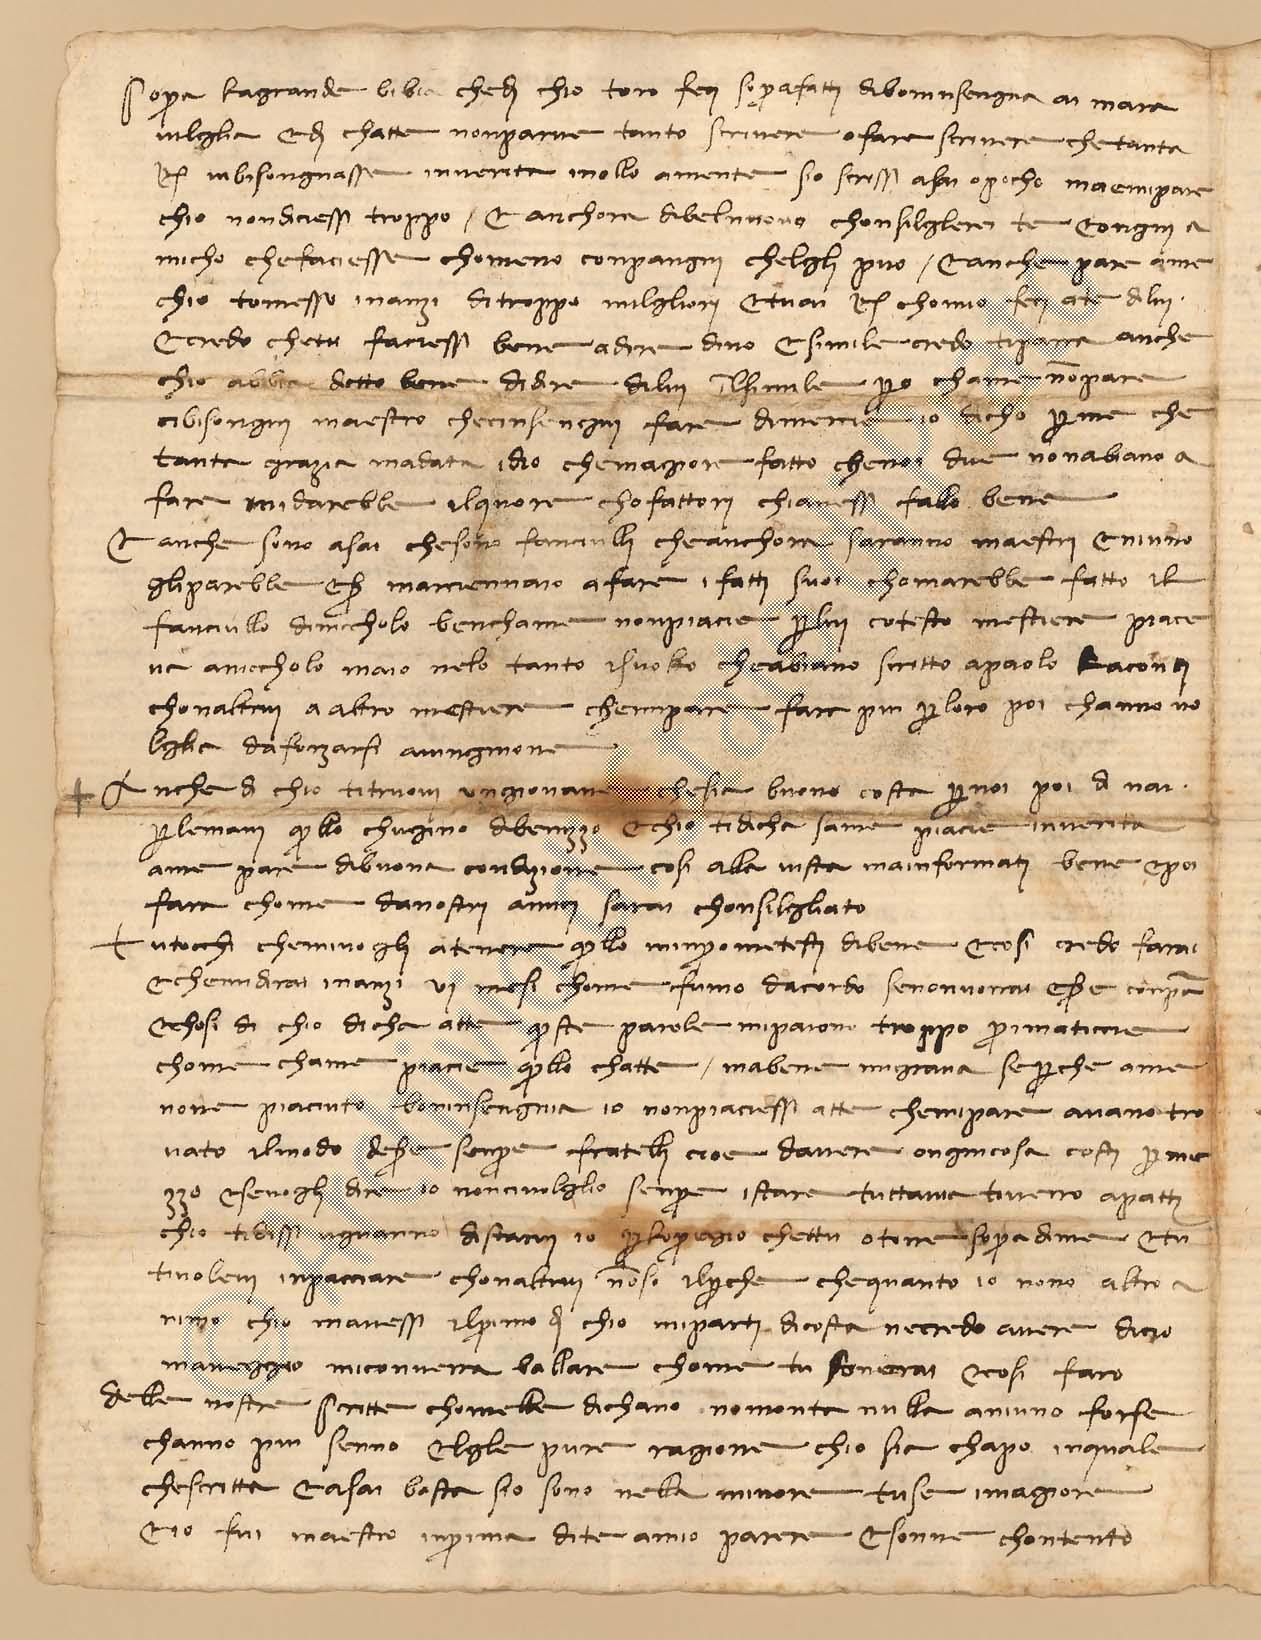 Sopra la grande bibia che di chio toro feci sopra fatti di boninsengna ai mara
vilglia e di chatte non parve tanto scrivere o fare scrivere che tanta
vi bisongnasse in verita mollo a mente sio scrissi asai o pocho ma e mi pare
chio non diciessi troppo / Et anchora di bel nuovo chonsilglerei te e ongni a
micho che faciesse chomeno conpangni chelgli puo / e anche pare a me
chio to messo inanzi di troppo milgliori e tu ai chomio feci a te di lui
E credo che tu faciessi bene a dire di no e simile credo ti paia anche
chio abbia detto bene di dire di lui il simile pero cha me non pare
ci bisongni maestro che cinsengni fare di mercie io dicho per me che
tanta grazia ma data idio che magiore fatto che noi due non abiano a
fare mi darebbe il quore cho fattori chi avessi fallo bene
E anche sono asai che sono fanciulli che anchora saranno maestri e niuno
gli parebbe esser marciennaio a fare i fatti suoi chomarebbe fatto il
fanciullo di nicholo bencha me non piacie per lui cotesto mestiere piace
va a nicholo maio nelo tanto isvolto che abiano scritto a paolo laconci
chon altrui a altro mestiere che mi pare fare piu per loro poi channo vo
lglia da forzarsi a vingnone
Anche di chio ti truovi un giovane che sia buono costa per noi poi di nai
per le mani quello chugino di benuzzo e chio ti dicha sa me piacie in verita
a me pare di buona condizione cosi alla vista ma informati bene e poi
fara chome da nostri amici sarai chonsilgliato
Tu tocchi che mi vogli atenere quello mi inprometesti di bene e cosi credo farai
e che mi dirai inanzi vi mesi chome fumo dacordo se non vorrai esser conpa
e chosi di chio dicha a tte queste parole mi paiono troppo primaticcie
chome cha me piacie quello cha tte / ma bene mi grava se perche a me
none piaciuto boninsengna io non piaciessi a tte che mi pare avano tro
vato il modo desser senpre fratelli cioe davere ongni cosa costi per me
zzo e se vogli dire io non ci volglio senpre istare tuttavia ti verro a patti
chio ti dissi uguanno di starvi io per lo pregio chettu o tore sopra di me e tu
ti volevi inpacciare chon altrui non so il perche che quanto io nono altro a
nimo chio mavessi il primo di chio mi parti di costa ne credo avere di cio
maneggio mi converra ballare chome tu sonerai e cosi faro
delle nostre scritte chomelle dichano no monta nulla a niuno forse
channo piu senno e lgle pure ragione chio sia chapo in quale
che scritta e asai basta sio sono nella minore tu se in magiore
e io fui maestro in prima di te a mio parere e sonne chontento